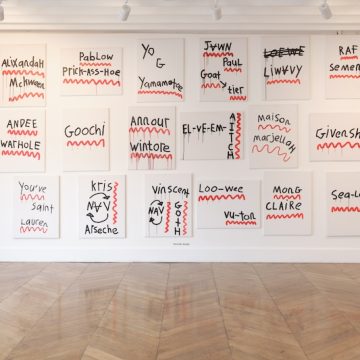 ALiXandaH
McKween
PabLow
Prick-Ass-Hoe
Yo
G
Yamamotoe
JAWN
PauL
Goat
tier
LOEWE
LiWAVY
RAF
Semen
ANDEE
WARHOLE
Goochi
Annour
wintore
EL-VE-EM-
AITCH
maison
marjelloh
Givensh
You've
Saint
Lauren
kris
NAV
Arseche
Vinscent
NAV
GOTH
Loo-wee
vu-ton
MonG
CLAIRE
Sea-L